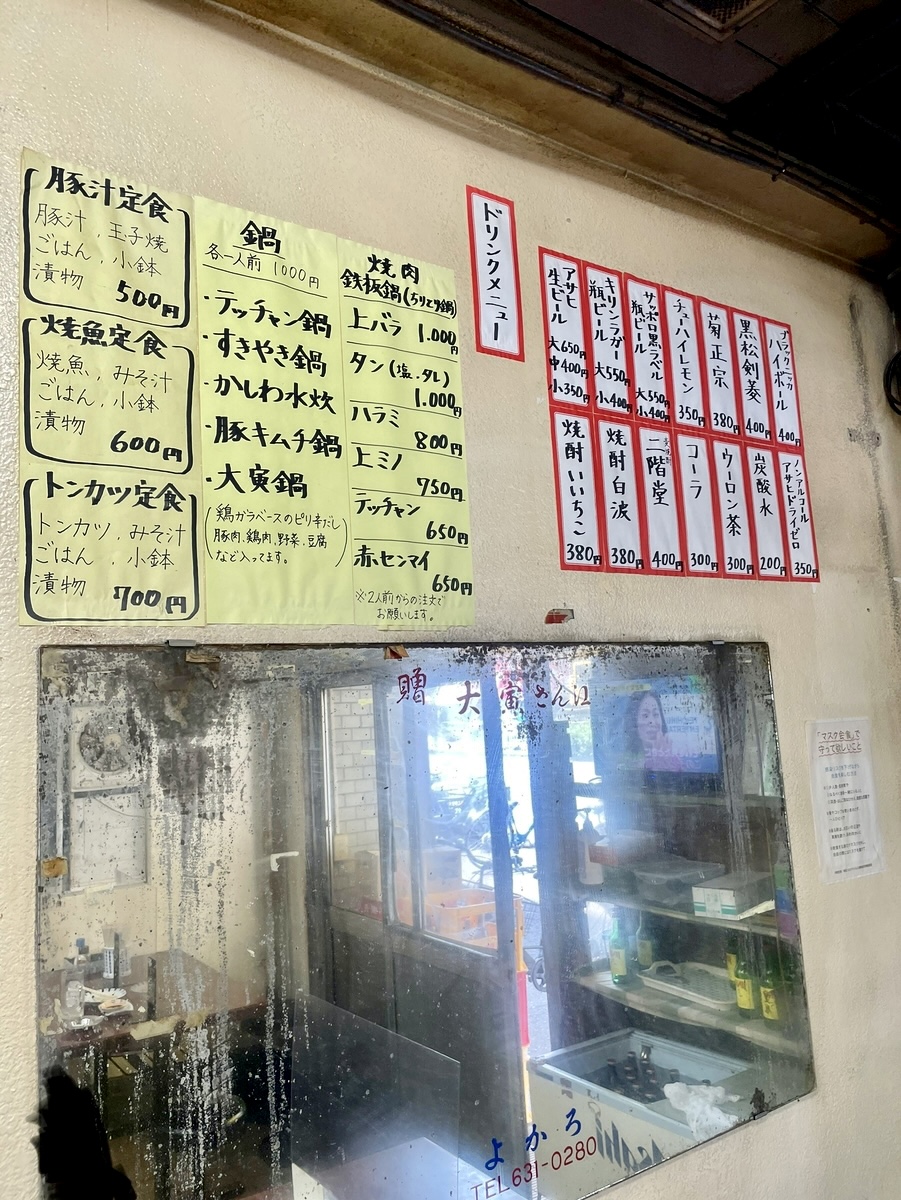 豚汁定食
豚汁、玉子焼
ごはん、小鉢
漬物
500円
焼魚定食
焼魚、みそ汁
ごはん、小鉢
漬物
600円
トンカツ定食
トンカツ、みそ汁
ごはん、小鉢
漬物
700円
鍋
各一人前 1000円
・テッチャン鍋
・すきやき鍋
・かしわ水炊
・豚キムチ鍋
・大寅鍋
(鶏ガラベースのピリ辛だし
豚肉、鶏肉、野菜、豆腐
など入ってます。)
焼肉
鉄板鍋(ちりとり鍋)
上バラ
1.000円
タン(塩.タレ)
1.000円
ハラミ
800円
上ミノ
750円
テッチャン
650円
赤センマイ
650円
※2人前からの注文で
お願いします。
ドリンクメニュー
アサヒ
生ビール
大650円
中400円
小350円
キリンラガー
瓶ビール
大550円
小400円
サッポロ黒ラベル
瓶ビール
大550円
小400円
チューハイレモン
350円
菊正宗
380円
黒松剣菱
400円
ブラックニッカ
ハイボール
400円
焼酎いいちこ
380円
焼酎白波
380円
麦焼酎
二階堂
400円
コーラ
300円
ウーロン茶
300円
炭酸水
200円
ノンアルコール
アサヒドライゼロ
350円
贈 大寅さん江
「マスク会食」で
守って欲しいこと
よかろ
TEL631-0280